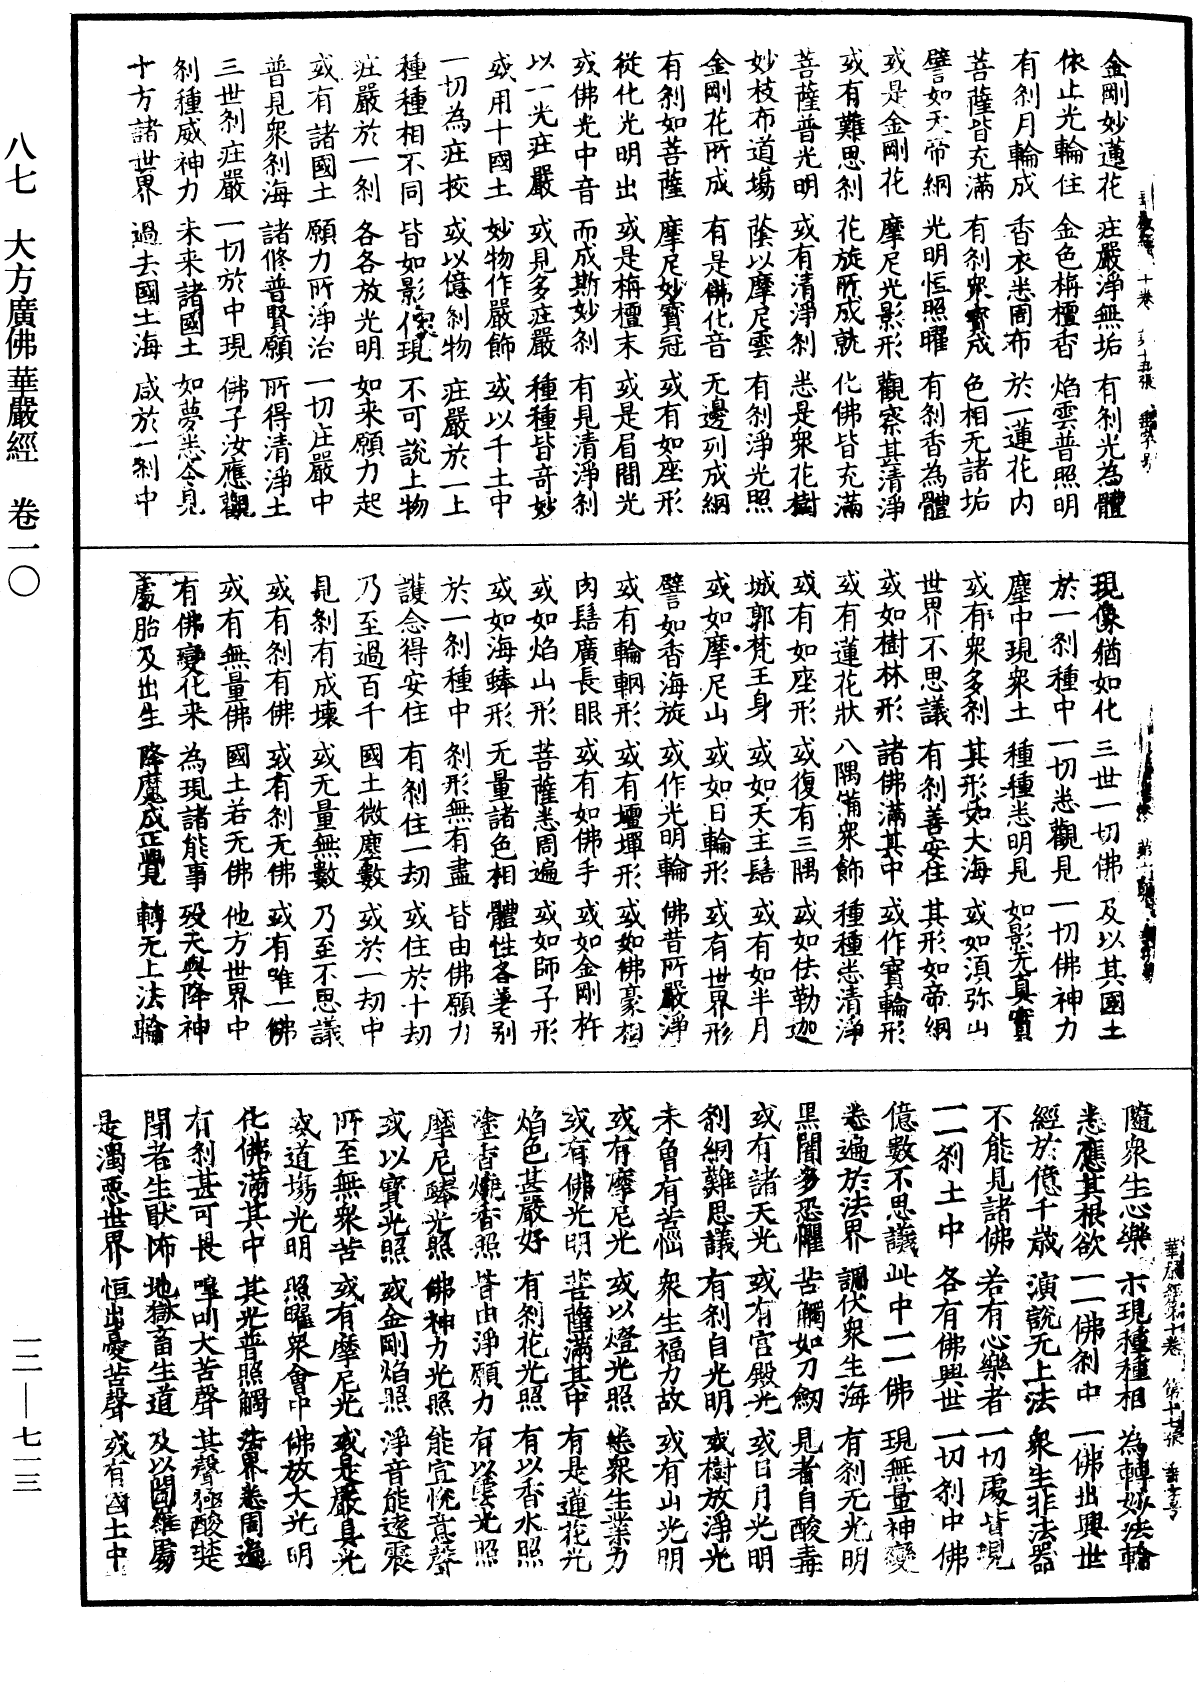 八七　大方廣佛華嚴經　卷一〇
一二—七一三
金剛妙蓮花　莊嚴淨無垢　有刹光為體
依止光輪住　金色栴檀香　焰雲普照明
有刹月輪成　香衣悉周布　於一蓮花內
菩薩皆充滿　有刹衆寶成　色相无諸垢
譬如天帝網　光明恒照曜　有刹香為體
或是金剛花　摩尼光影形　觀察其清淨
或有難思刹　花旋所成就　化佛皆充滿
菩薩普光明　或有清淨刹　悉是衆花樹
妙枝布道場　蔭以摩尼雲　有刹淨光照
金剛花所成　有是佛化音　无邊列成網
有刹如菩薩　摩尼妙寶冠　或有如座形
從化光明出　或是栴檀末　或是眉間光
或佛光中音　而成斯妙刹　有見清淨刹
以一光莊嚴　或見多莊嚴　種種皆奇妙
或用十國土　妙物作嚴飾　或以千土中
一切為莊挍　或以億刹物　莊嚴於一土
種種相不同　皆如影像現　不可說土物
莊嚴於一刹　各各放光明　如來願力起
或有諸國土　願力所淨治　一切庄嚴中
普見衆刹海　諸修普賢願　所得清淨土
三世刹莊嚴　一切於中現　佛子汝應觀
刹種威神力　未来諸國土　如夢悉令見
十方諸世界　過去國土海　咸於一刹中
現像猶如化　三世一切佛　及以其國土
於一刹種中　一切悉觀見　一切佛神力
塵中現衆土　種種悉明見　如影无真實
或有衆多刹　其形如大海　或如須弥山
世界不思議　有刹善安住　其形如帝網
或如樹林形　諸佛滿其中　或作寶輪形
或有蓮花狀　八隅備衆飾　種種悉清淨
或有如座形　或復有三隅　或如佉勒迦
城郭梵王身　或如天主髻　或有如半月
或如摩尼山　或如日輪形　或有世界形
譬如香海旋　或作光明輪　佛昔所嚴淨
或有輪輞形　或有壇墠形　或如佛毫相
肉髻廣長眼　或有如佛手　或如金剛杵
或如焰山形　菩薩悉周遍　或如師子形
或如海蜯形　无量諸色相　體性各差別
於一刹種中　刹形無有盡　皆由佛願力
護念得安住　有刹住一劫　或住於十劫
乃至過百千　國土微塵數　或於一劫中
見刹有成壞　或无量無數　乃至不思議
或有刹有佛　或有刹无佛　或有唯一佛
或有無量佛　國土若无佛　他方世界中
有佛變化来　為現諸能事　歿天與降神
處胎及出生　降魔成正覺　轉无上法輪
隨衆生心樂　示現種種相　為轉妙法輪
悉應其根欲　一一佛刹中　一佛出興世
經於億千歲　演說无上法　衆生非法器
不能見諸佛　若有心樂者　一切處皆現
一一刹土中　各有佛興世　一切刹中佛
億數不思議　此中一一佛　現無量神變
悉遍於法界　調伏衆生海　有刹无光明
黑闇多恐懼　苦觸如刀劒　見者自酸毒
或有諸天光　或有宮殿光　或日月光明
刹網難思議　有刹自光明　或樹放淨光
未曾有苦惱　衆生福力故　或有山光明
或有摩尼光　或以燈光照　悉衆生業力
或有佛光明　菩薩滿其中　有是蓮花光
焰色甚嚴好　有刹花光照　有以香水照
塗香燒香照　皆由淨願力　有以雲光照
摩尼蜯光照　佛神力光照　能宣悅意聲
或以寶光照　或金剛焰照　淨音能遠震
所至無衆苦　或有摩尼光　或是嚴具光
或道場光明　照曜衆會中　佛放大光明
化佛滿其中　其光普照觸　法界悉周遍
有刹甚可畏　嘷叫大苦聲　其聲極酸楚
聞者生猒怖　地獄畜生道　及以閻羅處
是濁惡世界　恒出憂苦聲　或有國土中